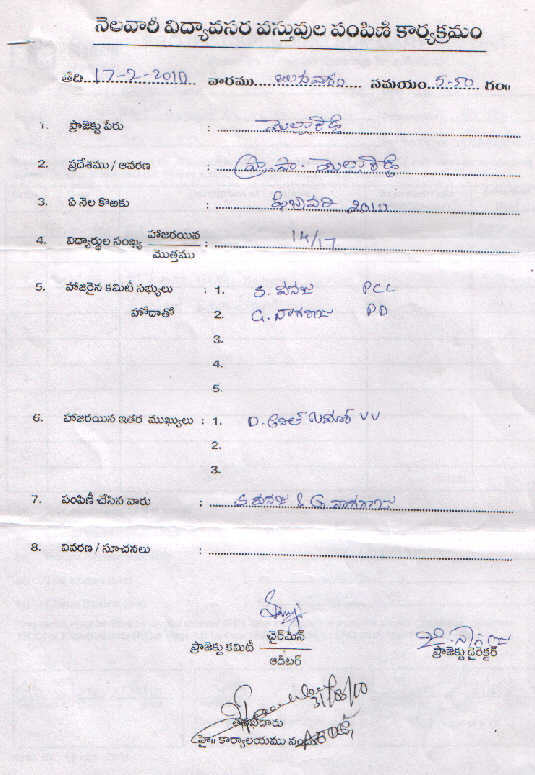 నెలవారీ విద్యావసర వస్తువుల పంపిణీ కార్యక్రమం
తేది 17-2-2010 వారము బుధవారం సమయం 5-50 గం॥
1. ప్రాజెక్టు పేరు :
2. ప్రదేశము / ఆవరణ :
3. ఏ నెల కొఱకు : ఫిబ్రవరి 2010
4. విద్యార్థుల సంఖ్య హాజరయిన / మొత్తము : 14/17
5. హాజరైన కమిటీ సభ్యులు : 1. PCC
హోదాతో 2. G. నాగరాజు PD
3.
4.
5.
6. హాజరయిన ఇతర ముఖ్యులు : 1. D. VV
2.
3.
7. పంపిణీ చేసిన వారు : & G. నాగరాజు
8. వివరణ / సూచనలు :
ప్రాజెక్టు కమిటీ ఛైర్మన్ / ఆడిటర్ ప్రాజెక్టు డైరెక్టర్
31/08/10
హై॥ కార్యాలయము